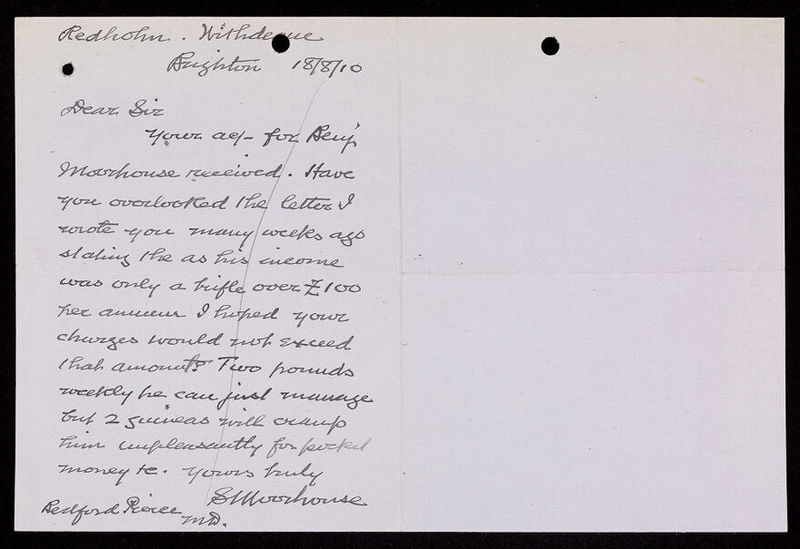 Redholm. Withdeane
Brighton 18/8/10
Dear Sir
Your a/c- for Benj
Moorhouse received. Have
you overlooked the letter I
wrote you many weeks ago
stating the as his income
was only a trifle over £100
per annum I hoped your
charges would not exceed
that amount? Two pounds
weekly he can just manage
but 2 guineas will cramp
him unpleasantly for pocket
money &c. Yours truly
S Moorhouse
Bedford Pierce
MD.